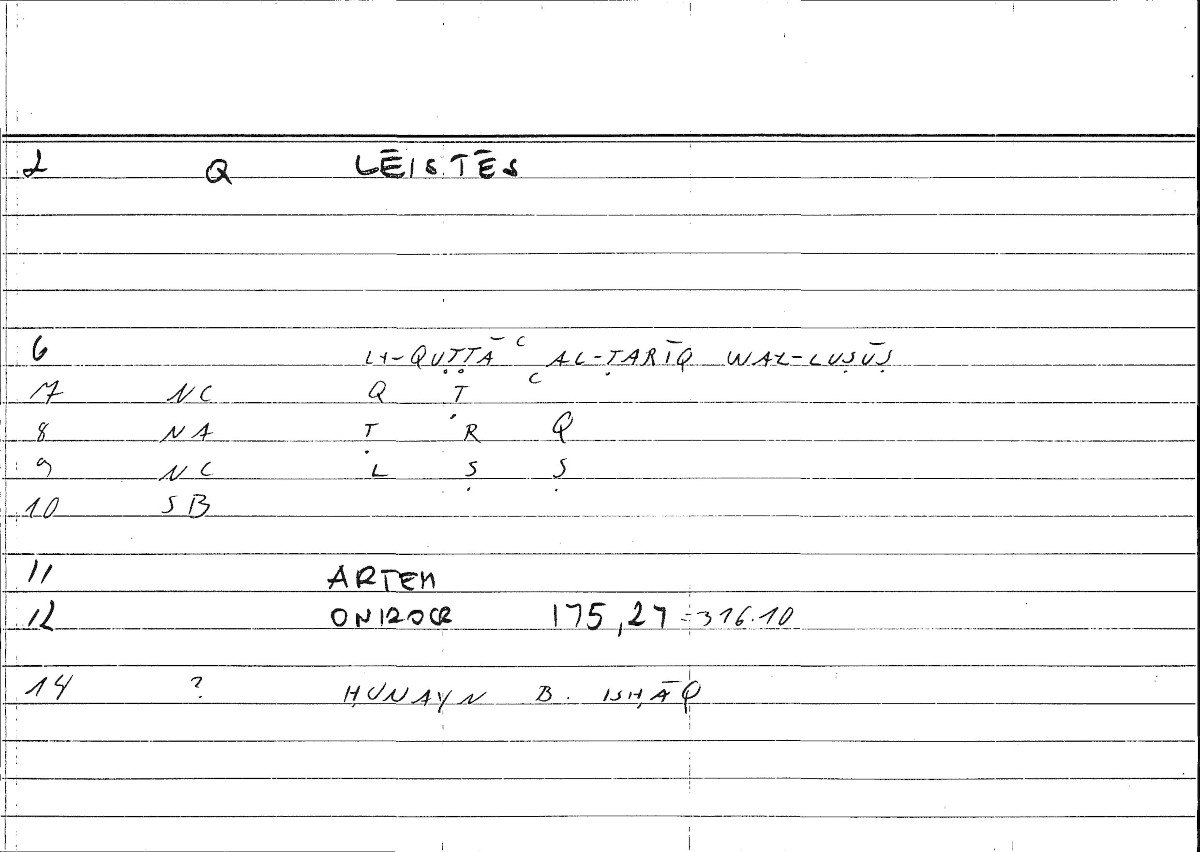 2 Q LĒISTĒS
6 LI-QUṬṬĀʿ AL-ṬARĪQ WAL-LUṢŪṢ
7 NC Q Ṭ ʿ
8 NA Ṭ R Q
9 NC L Ṣ Ṣ
10 SB
11 ARTEM
12 ONIROCR 175,27 = 316.10
14 ? ḤUNAYN B. ISḤĀQ